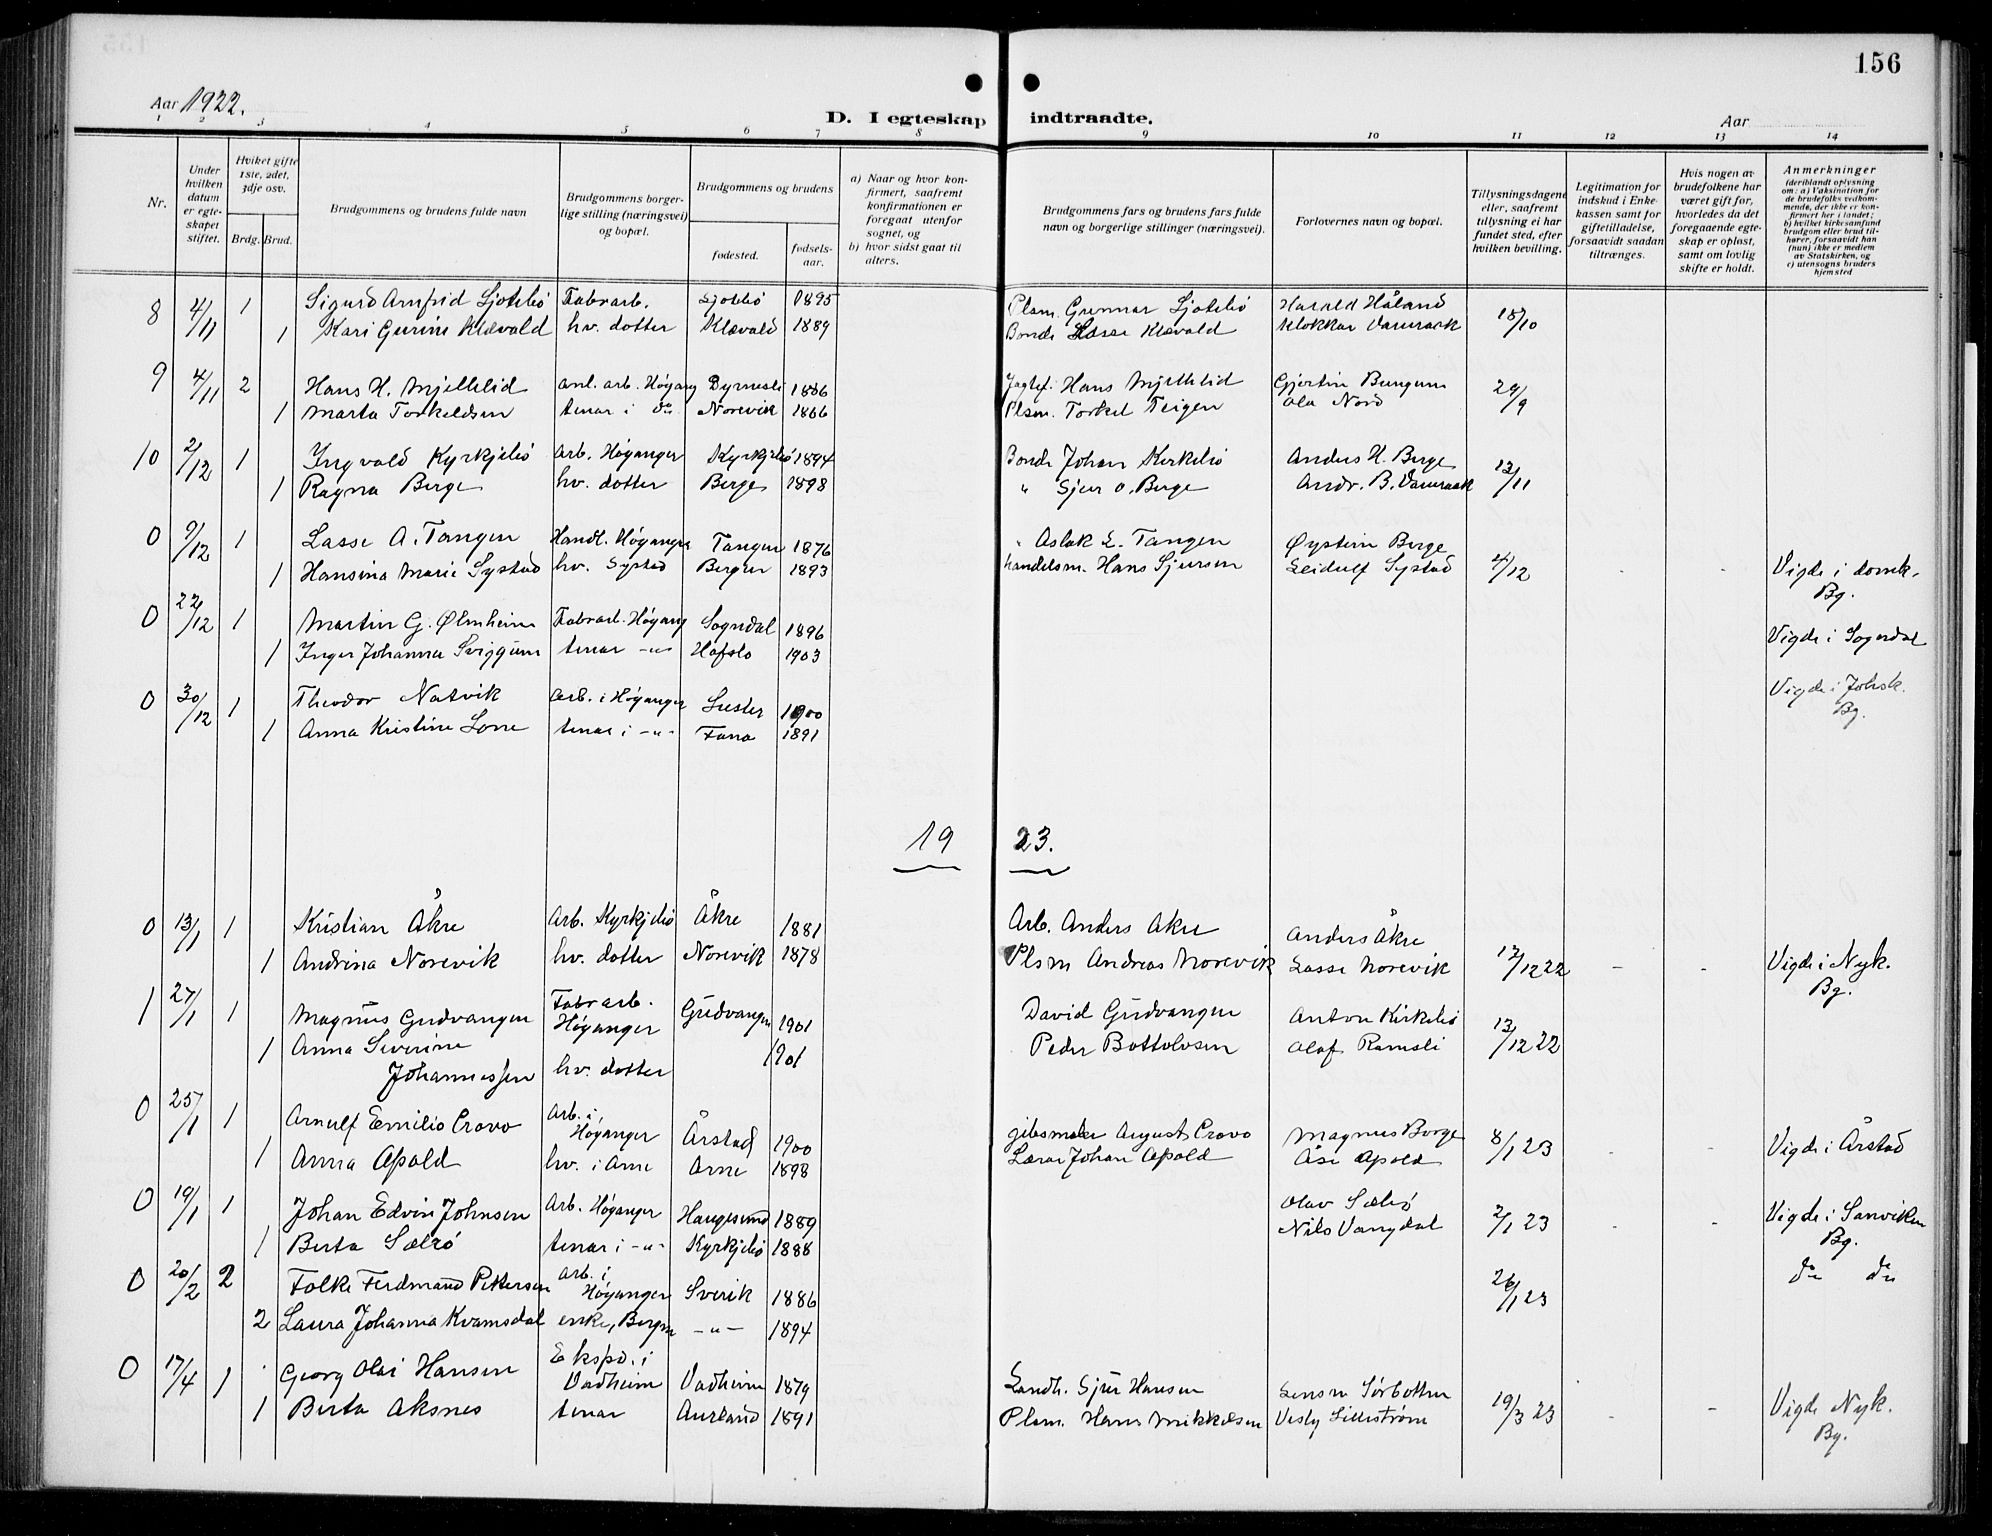 156
Aar 1922.
D. I egteskap indtraadte.
Aar
1 2 3 4 5 6 7 8 9 10 11 12 13 14
Nr.
Under hvilken datum er egteskapet stiftet.
Hviket gifte 1ste, 2det, 3dje osv.
Brdg. Brud.
Brudgommens og brudens fulde navn
Brudgommens borgerlige stilling (næringsvei) og bopæl.
Brudgommens og brudens
fødested.
fødselsaar.
a) Naar og hvor konfirmert, saafremt konfirmationen er foregaat utenfor sognet, og
b) hvor sidst gaat til alters.
Brudgommens fars og brudens fars fulde navn og borgerlige stillinger (næringsvei).
Forlovernes navn og bopæl.
Tillysningsdagene eller, saafremt tillysning ei har fundet sted, efter hvilken bevilling.
Legitimation for indskud i Enkekassen samt for giftetilladelse, forsaavidt saadan tiltrænges.
Hvis nogen av brudefolkene har været gift før, hvorledes da det foregaaende egteskap er opløst, samt om lovlig skifte er holdt.
Anmerkninger (deriblandt oplysning om: a) Vaksination for de brudefolks vedkommende, der ikke er konfirmert her i landet; b) hvilket kirkesamfund brudgom eller brud tilhører, forsaavidt han (hun) ikke er medlem av Statskirken, og c) utensogns bruders hjemsted
8 4/11 1 Sigurd Arnfrid Ljotebö Fabrarb. Ljotebö 1895 Plsm. Gunnar Ljotebö Harald Håland 18/10
1 Kari Gurine Klævold hv. dotter Klævold 1889 Bonde Lasse Klævold Klokkar Vamraak
9 4/11 2 Hans H. Mjellelid anl. arb. Høyang Byrnesli 1886 Hans Mjellelid Gjertin Bungum 29/9
1 Marta Torkeldsen tenar i do Norevik 1886 Plsm. Torkel Teigen Ola Nord
10 2/12 1 Ingvald Kyrkjebö Arb. Høyanger Kyrkjebö 1894 Bonde Johan Kirkebö Anders H. Berge 13/11
1 Ragna Berge hv. dotter Berge 1898 " Sjur O. Berge Andr. B. Vamraak
0 9/12 1 Lasse A. Tangen Handl. Høyanger Tangen 1876 " Aslak E. Tangen Øystein Berge
1 Hansina Marie Systad hv. Systad Bergen 1893 handelsm. Hans Sjursen Leidulf Systad 4/12 - - Vigde i domk.
Bg.
0 22/12 1 Martin G. Ølmheim Fabrarb. Høyang Sogndal 1896 Vigde i Sogndal
1 Inger Johanna Sviggum tenar -"- Hafslo 1903
0 30/12 1 Theodor Natvik Arb. i Høyanger Luster 1900 Vigde i Johsk.
1 Anna Kristine Lone tenar i -"- Fana 1891 Bg.
1923.
0 13/1 1 Kristian Åkre Arb. Kyrkjebö Åkre 1881 Arb. Anders Akre Anders Åkre
1 Andrina Norevik hv. dotter Norevik 1878 Plsm Andreas Norevik Lasse Norevik 17/12 22 - - Vigde i Nyk.
Bg.
1 27/1 1 Magnus Gudvangen Fabrarb. Høyanger Gudvangen 1901 David Gudvangen Anton Kirkebö 13/12 22
1 Anna Severine Johannessen hv. dotter 1901 Peder Bottolvsen Olaf Ramsli
0 25/1 1 Arnulf Emilio Crovo Arb. i Høyanger Årstad 1900 August Crovo Magnus Borge 8/1 23 - - Vigde i Årstad
1 Anna Apold hv. i Arne Arne 1898 Lærar Johan Apold Åse Apold
0 19/1 1 Johan Edvin Johnsen Arb. Høyanger Haugesund 1889 Olav Sælsö
1 Berta Sælsö tenar i -"- Kyrkjebö 1888 Nils Vangdal 2/1 23 - - Vigde i Sanviken
Bg.
0 20/2 2 Folke Ferdinand Pettersen Arb. i Høyanger Sverik 1886 26/1 23 do do
2 Laura Johanna Kvamsdal enke, Bergen -"- 1894
0 17/4 1 Georg Olai Hansen Ekspd. i Vadheim Vadheim 1879 Landh. Sjur Hansen
1 Berta Aksnes tenar Aurland 1891 Plsm. Hans Mikkelsen 19/3 23 - - Vigde Nyk.
Bg.